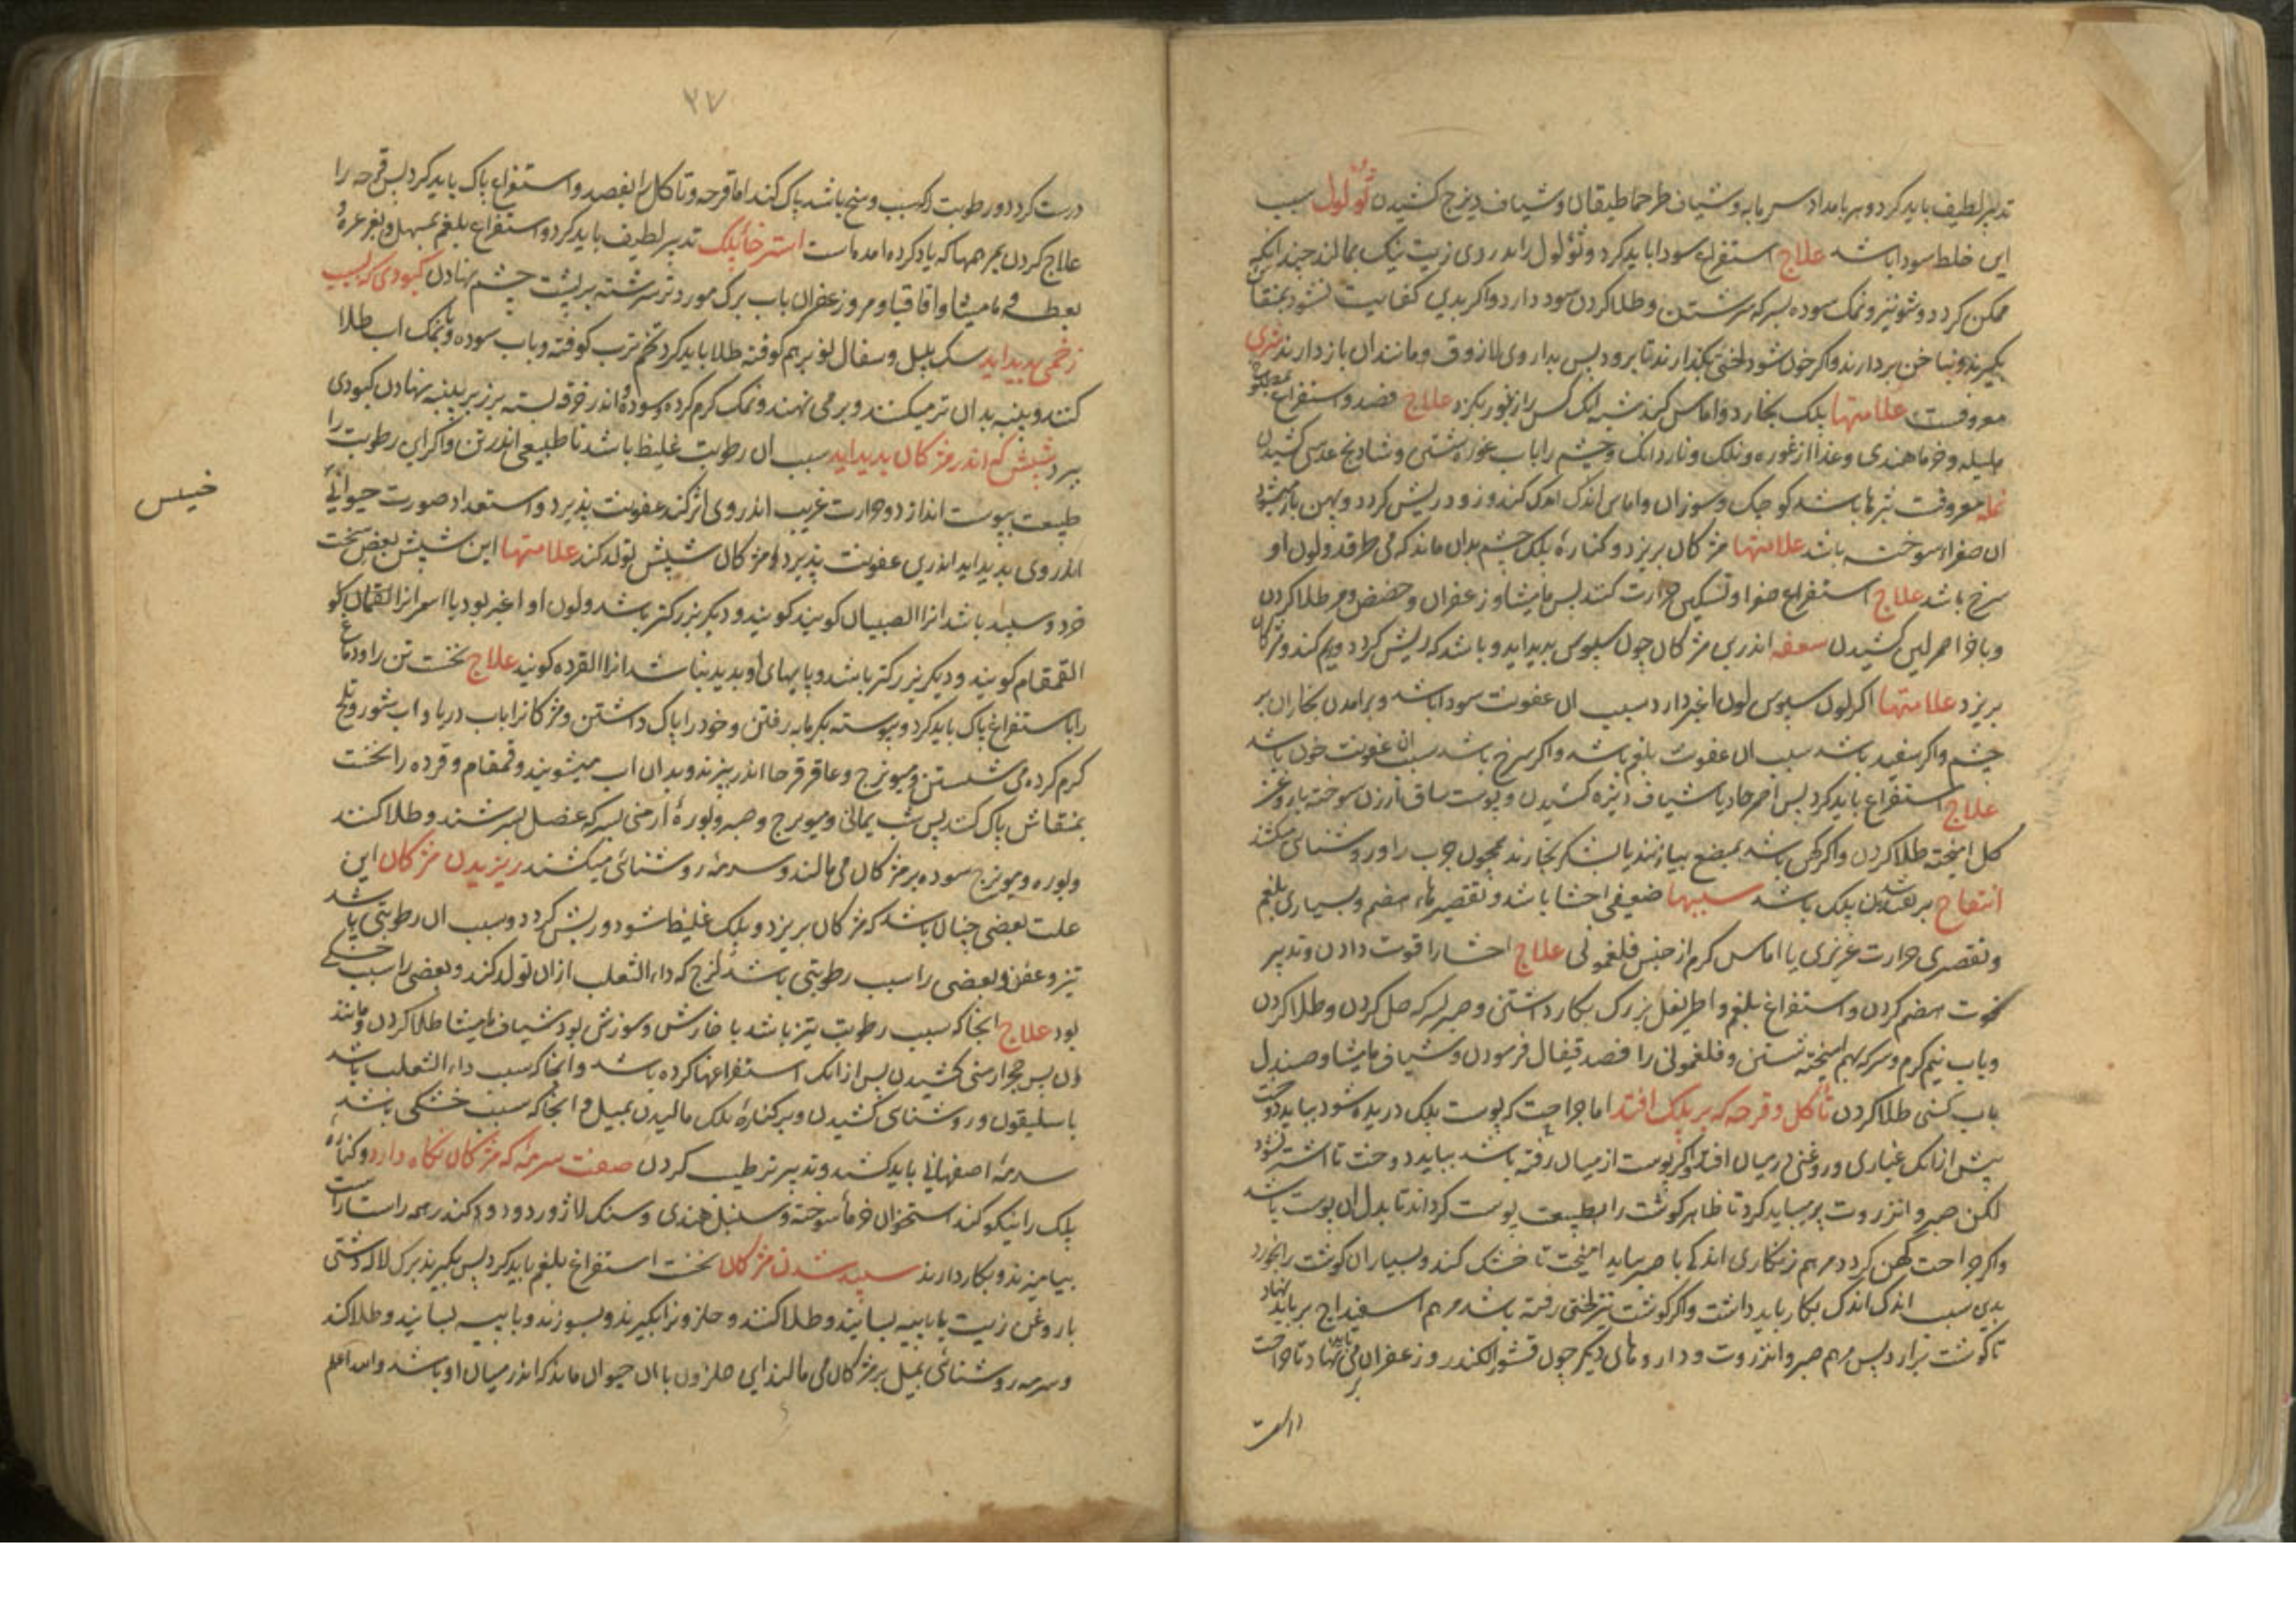 تدبیر لطیف باید کرد و هر بامداد سرمابه و شیاف طرخماطیقان و شیاف دیزج کشیدن ثولول سبب
این خلط سودا باشد علاج استفراغ سودا باید کرد و ثولول را اندر دی زیت نیک بمالند چندانکه
ممکن کردد و شونیز و نمک سوده بسرکه سرشتن و طلا کردن سود دارد و اکر بدین کفایت نشود بمنقاش
بکیرند و بناخن بردارند و اکر خون شود لختی بکذارند تا برود بس بداروی لازوق و مانند آن باز دارند شری
معروفست علامتها پلک بخارد و اماس کند شبه انک کس را زنبور بکزد علاج فصد و استفراغ
هلیله و خرما هندی و غذا از غوره و نلک و ناردانک و چشم را باب غوره شستن و شادنج عدسی کشیدن
نمله معروفست بثرها باشد کوچک و سوزان و اماس اندک اندک کند و زود ریش کردد و پهن باز میشود
ان صفراء سوخته باشد علامتها مژکان بریزد و کناره پلک چشم بدان ماند که می طرقد و لون او
سرخ باشد علاج استفراغ صفرا و تسکین حرارت کنند بس مامیثا و زعفران و حضض و مر طلا کردن
و باخر احمر لین کشیدن سعفه اندر بن مژکان چون سپوس بدید اید و باشد که ریش کردد و ریم کند و مژکان
بریزد علامتها اکر لون سپوس لون اغبر دارد سبب آن عفونت سودا باشد و برامدن بخار آن بر
چشم و اکر سفید باشد سبب آن عفونت بلغم باشد و اکر سرخ باشد سبب ان عفونت خون باشد
علاج استفراغ باید کرد بس احمر حاد یا شیاف دیزه کشیدن و پوست ساق ارزن سوخته با روغن
کل امیخته طلا کردن و اکر کهن باشد بمبضع بیازنند یا بشکر بخارند همچون جرب را و روشنای میکشند
انتفاخ بر اماسیدن پلک باشد سببها ضعیفی احشا باشد و تقصیرهاء هضم و بسیاری بلغم
و تقصیری حرارت غریزی یا اماس کرم از جنس فلغمونی علاج احشا را قوت دادن و تدبیر
خوت هضم کردن و استفراغ بلغم و اطریفل بزرک بکار داشتن و صبر بسرکه حل کردن و طلا کردن
و باب نیم کرم و سرکه بهم امیخته شستن و فلغمونی را فصد قیفال فرمودن و شیاف مامیثا و صندل
باب کسنی طلا کردن تاکل و قرحه که بر پلک افتد اما جراحت که پوست پلک دریده شود بباید دوخت
پیش از انک غباری و روغنی در میان افتد و اکر پوست از میان رفته باشد بباید دوخت تا اشتر نشود
لکن صبر و انزروت بر میباید کرد تا ظاهر کوشت را بطبیعت پوست کرداند تا بدل ان پوست باشد
و اکر جراحت کهن کردد مرهم زنکاری اندکی با صبر بباید امیخت تا خشک کند و بسیار آن کوشت را بخورد
بدین سبب اندک اندک بکار باید داشت و اکر کوشت نیز لختی رفته باشد مرهم اسفیداج بر باید نهاد
تا کوشت برارد پس مرهم صبر و انزروت و داروهای دیکر چون قشور الکندر و زعفران می باید نهاد تا جراحت
درست
۳۷
درست کردد و رطوبت را که سبب وسخ باشد پاک کند اما قرحه و تاکل را بفصد و استفراغ پاک باید کرد بس قرحه را
علاج کردن بمرهمها که یاد کرده امده است استرخاء پلک تدبیر لطیف باید کرد و استفراغ بلغم بمسهل و بغرغره و
بعطسه و مامیثا و اقاقیا و مر و زعفران باب برک مورد تر سرشته بر پشت چشم نهادن کبودی که بسبب
زخمی بدید اید سنک پلپل و سفال نو بر هم کوفته طلا باید کرد و تخم ترب کوفته و باب سوده و با نمک اب طلا
کنند و پنبه بدان تر میکنند و بر می نهند و نمک کرم کرده و سوده و اندر خرقه بسته بر زبر پنبه نهادن کبودی
ببرد شپش که اندر مژکان بدید اید سبب ان رطوبت غلیظ باشد نا طبیعی اندر تن و اکر این رطوبت را
طبیعت بپوست اندازد و حرارت غریب اندر وی اثر کند عفونت پذیرد و استعداد صورت حیوانی
اندر وی بدید اید اندرین عفونت پذیرد و از مژکان شپش تولد کند علامتها این شپش بعضی سخت
خرد و سپید باشد انرا الصیبان کویند و دیکر بزرکتر باشد و لون او اغبر بود یا اسمر انرا القملان کو
القمقام کویند و دیکر بزرکتر باشد و پایهای او بدید نباشد انرا القرده کویند علاج نخست تن را و دماغ
را باستفراغ پاک باید کرد و پیوسته بکرمابه رفتن و خود را پاک داشتن و مژکانرا باب دریا و اب شور و تلخ
کرم کرده می شستن و میویزج و عاقرقرحا اندر بپزند و بدان اب میشویند و قمقام و قرده را نخست
بمنقاش پاک کنند پس شب یمانی و میویزج و صبر و بوره ارمنی بسرکه عنصل بسرشند و طلا کنند
و بوره و میویزج سوده بر مژکان می مالند و سرمه روشنائی میکشند ریزیدن مژکان این
علت بعضی چنان باشد که مژکان بریزد و پلک غلیظ شود و ریش کردد و سبب ان رطوبتی باشد
تیز و عفن و بعضی را سبب رطوبتی باشد لزج که داء الثعلب از ان تولد کند و بعضی را سبب خشکی
بود علاج انجا که سبب رطوبت تیز باشد با خارش و سوزش بود شیاف مامیثا طلا کردن و مانند
ان بس حجر ارمنی کشیدن بس از انک استفراغها کرده باشد و انجا که سبب داء الثعلب باشد
باسلیقون و روشنای کشیدن و بر کناره پلک مالیدن بمیل و انجا که سبب خشکی باشد
سرمه اصفهانی باید کشید و تدبیر ترطیب کردن صفت سرمه که مژکان نکاه دارد و کناره
پلک را نیکو کند استخوان خرما سوخته و سنبل هندی و سنک لاژورد و دود کندر همه راستاراست
بیامیزند و بکار دارند سپید شدن مژکان نخست استفراغ بلغم باید کرد پس بکیرند برک لاله دشتی
با روغن زیت یا با پیه بسایند و طلا کنند و حلزونرا بکیرند و بسوزند و با پیه بسایند و طلا کنند
و سرمه روشنائی بمیل بر مژکان می مالند این حلزون با ان حیوان ماند که اندر میان او باشد والله اعلم
خیس